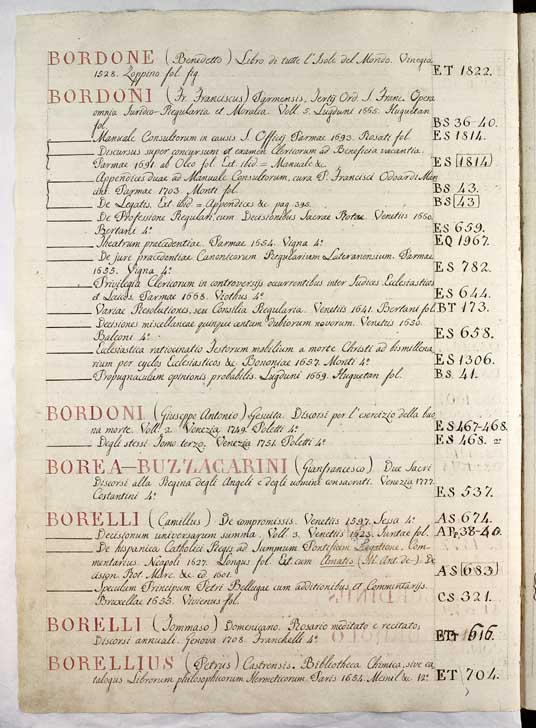 BORDONE (Benedetto) Libro di tutte l'Isole del Mondo. Vinegia
1528. Zoppino fol. fig. ET 1822.
BORDONI (Fr. Franciscus) Parmensis, Tertij Ord. S. Franc. Opera
omnia Juridico-Regularia et Moralia. Voll. 5. Lugduni 1665. Huguetan
fol. BS 36-40.
Manuale Consultorum in causis S. Officij Parmae 1693. Rosati fol. ES 1814.
Discursus super concursum et examen Clericorum ad Beneficia vacantia.
Parmae 1691. al Oleo fol. Ext. ibid = Manuale &c. ES 1814
Appendices duae ad Manuale Consultorum, cura P. Francisci Odoardi Man
cini. Parmae 1703. Monti fol. BS 43.
De Legatis. Ext. ibid = Appendices &c pag. 395. BS 43
De Professione Regulari, cum Decisionibus Sacrae Rotae. Venetiis 1660.
Bertani 4º ES 659.
Theatrum praecedentiae. Parmae 1654. Vigna 4º EQ 1967.
De jure praecedentiae Canonicorum Regularium Lateranensium. Parmae
1655. Vigna 4º ES 782.
Privilegia Clericorum in controversijs occurrentibus inter Judices Ecclesiasticos
et Laicos. Parmae 1668. Viothus 4º ES 644.
Variae Resolutiones, seu Consilia Regularia. Venetiis 1641. Bertani fol. BT 173.
Decisiones miscellaneae quinque centum Dubiorum novorum. Venetiis 1650.
Balconi 4º ES 658.
Ecclesiastica ratiocinatio Festorum mobilium a morte Christi ad bismillena
rium per cyclos Ecclesiasticos &c Bononiae 1657. Monti 4º ES 1306.
Propugnaculum opinionis probabilis. Lugduni 1669. Huguetan fol. BS. 41.
BORDONI (Giuseppe Antonio) Gesuita. Discorsi per l'esercizio della buo
na morte. Voll. 2. Venezia 1749. Poletti 4º ES 467-468.
Degli stessi Tomo terzo. Venezia 1751. Poletti 4º ES 468.
BOREA-BUZZACARINI (Gianfrancesco) Due Sacri
Discorsi alla Regina degli Angeli e degli uomini consacrati. Venezia 1777.
Costantini 4º ES 537.
BORELLI (Camillus) De compromissis. Venetiis 1597. Sessa 4º AS 674.
Decisionum universarum summa. Voll. 3. Venetiis 1625. Juntae fol. AP 38-40.
De hispanica Catholici Regis ad Summum Pontificem Legatione, Com-
mentarius. Neapoli 1627. Longus fol. Ext. cum Amatis (M. Ant. de-) De
cision. Rot. Marc. &c ed. 1601. AS 683
Speculum Principum Petri Bellugae cum additionibus et Commentarijs.
Bruxellae 1655. Vivienus fol. CS 321.
BORELLI (Tommaso) Domenicano. Rosario meditato e recitato,
Discorsi annuali. Genova 1708. Franchelli 4º 1616.
BORELLIUS (Petrus) Castrensis. Bibliotheca Chimica, sive ca
talogus Librorum philosophicorum Hermeticorum. Paris 1654. Mesnil &c 12º ET 704.